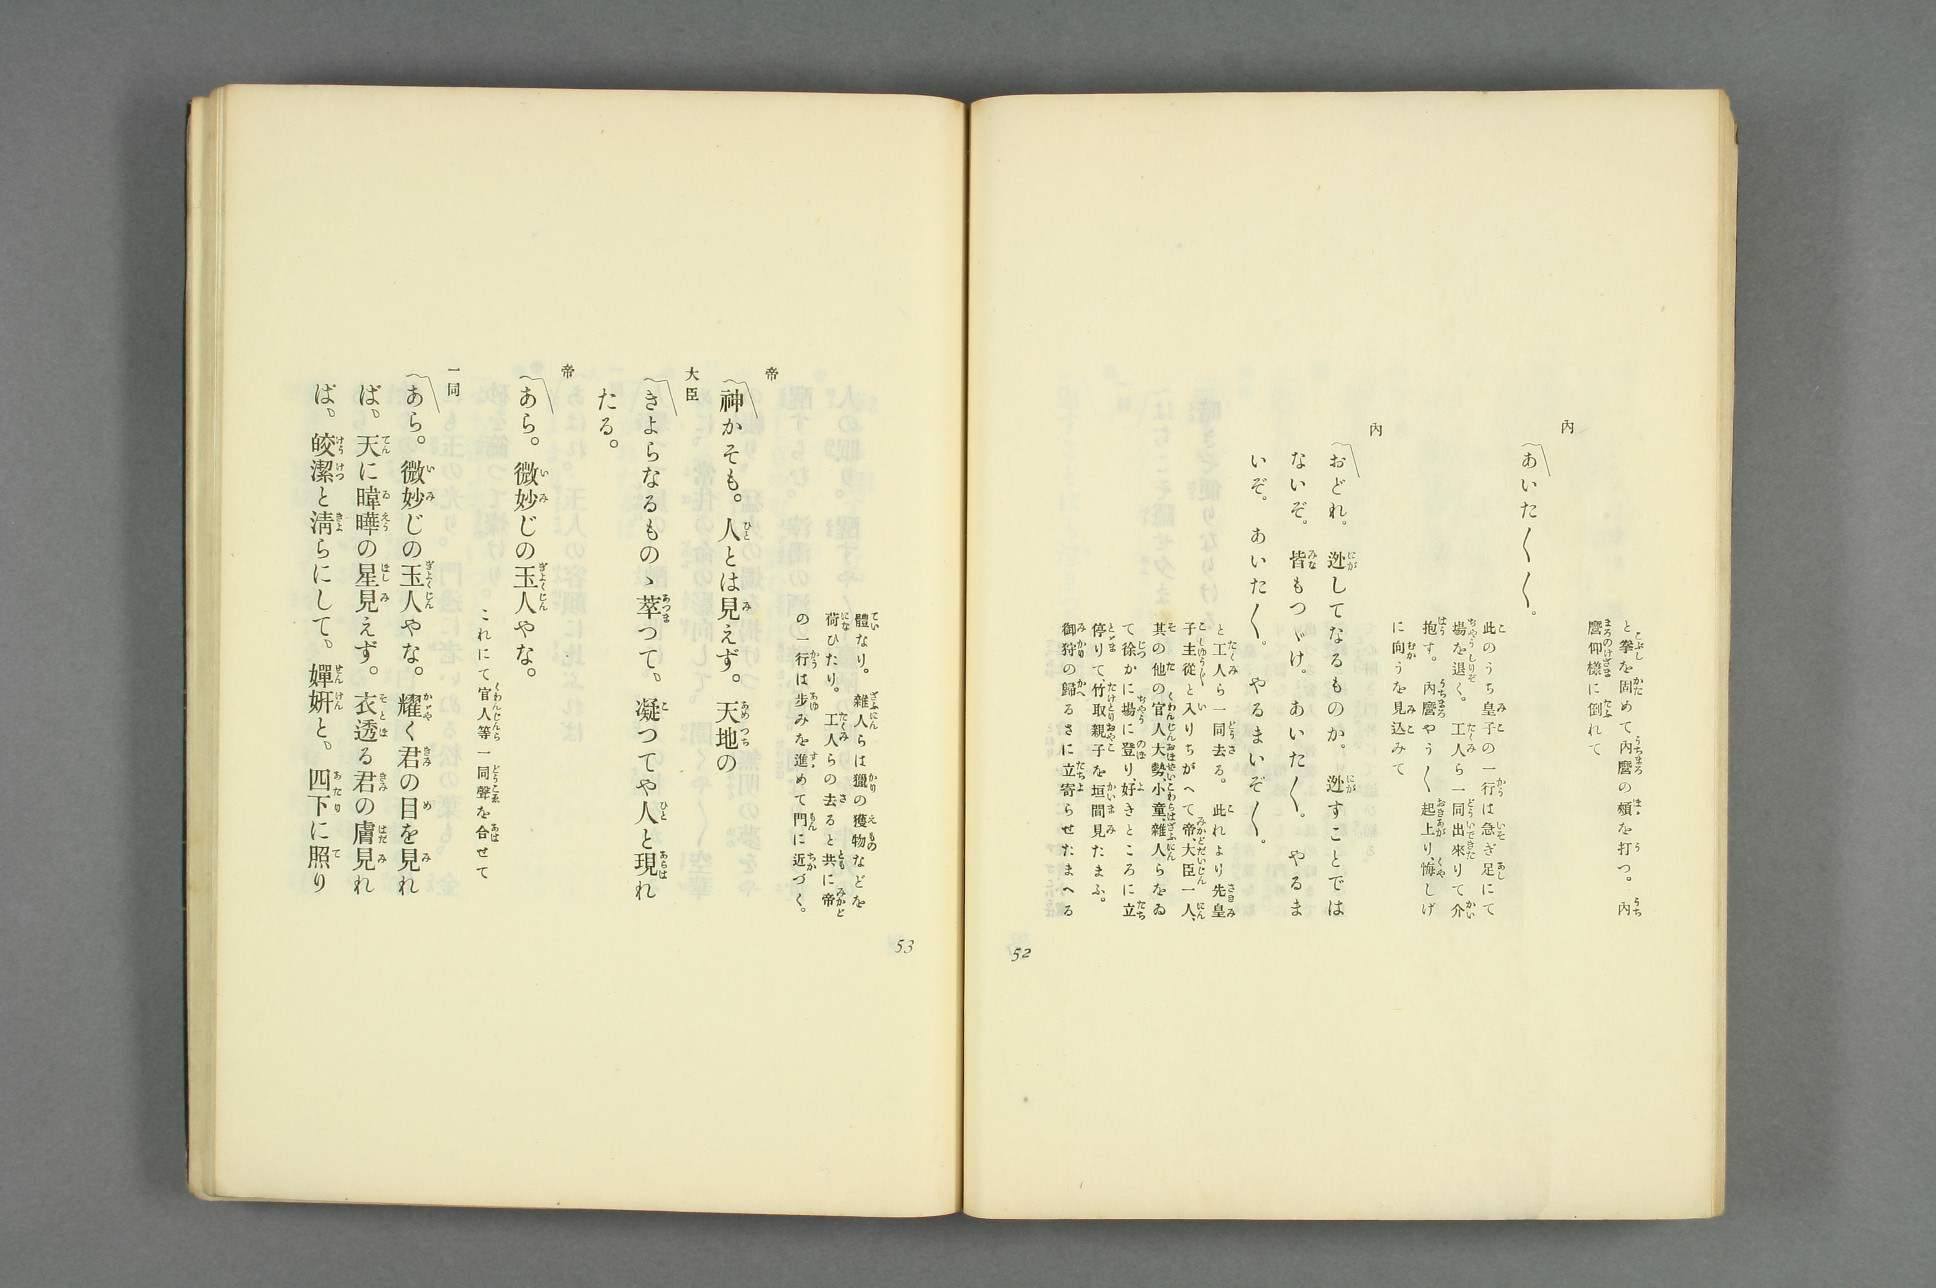 と拳を固めて內麿の頰を打つ。內
麿仰樣に倒れて
內
あいた〱〱。
此のうち皇子の一行は急ぎ足にて
場を退く。工人ら一同出來りて介
抱す。內麿やう〱起上り、悔しげ
に向うを見込みて
內
おどれ。逃してなるものか。逃すことでは
ないぞ。皆もつゞけ。あいた〱。やるま
いぞ。あいた〱。やるまいぞ〱。
と工人ら一同去る。此れより先皇
子主從と入りちがへて帝、大臣一人、
其の他の官人大勢、小童、雜人らをゐ
て徐かに場に登り、好きところに立
停りて、竹取親子を垣間見たまふ。
御狩の歸るさに立寄らせたまへる
52
體なり。雜人らは獵の獲物などを
荷ひたり。工人らの去ると共に帝
の一行は步みを進めて門に近づく。
帝
神かそも。人とは見えず。天地の
大臣
きよらなるものゝ萃つて、凝つてや人と現れ
たる。
帝
あら。微妙じの玉人やな。
これにて官人等一同聲を合せて
一同
あら。微妙じの玉人やな。耀く君の目を見れ
ば、天に暐曄の星見えず。衣透る君の膚見れ
ば、皎潔と淸らにして、嬋姸と、四下に照り
53